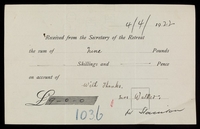 4/4/1923
Received from the Secretary of the Retreat
the sum of Nine Pounds
Shillings and Pence
on account of
With Thanks.
£ 9 . 0 . 0
1036